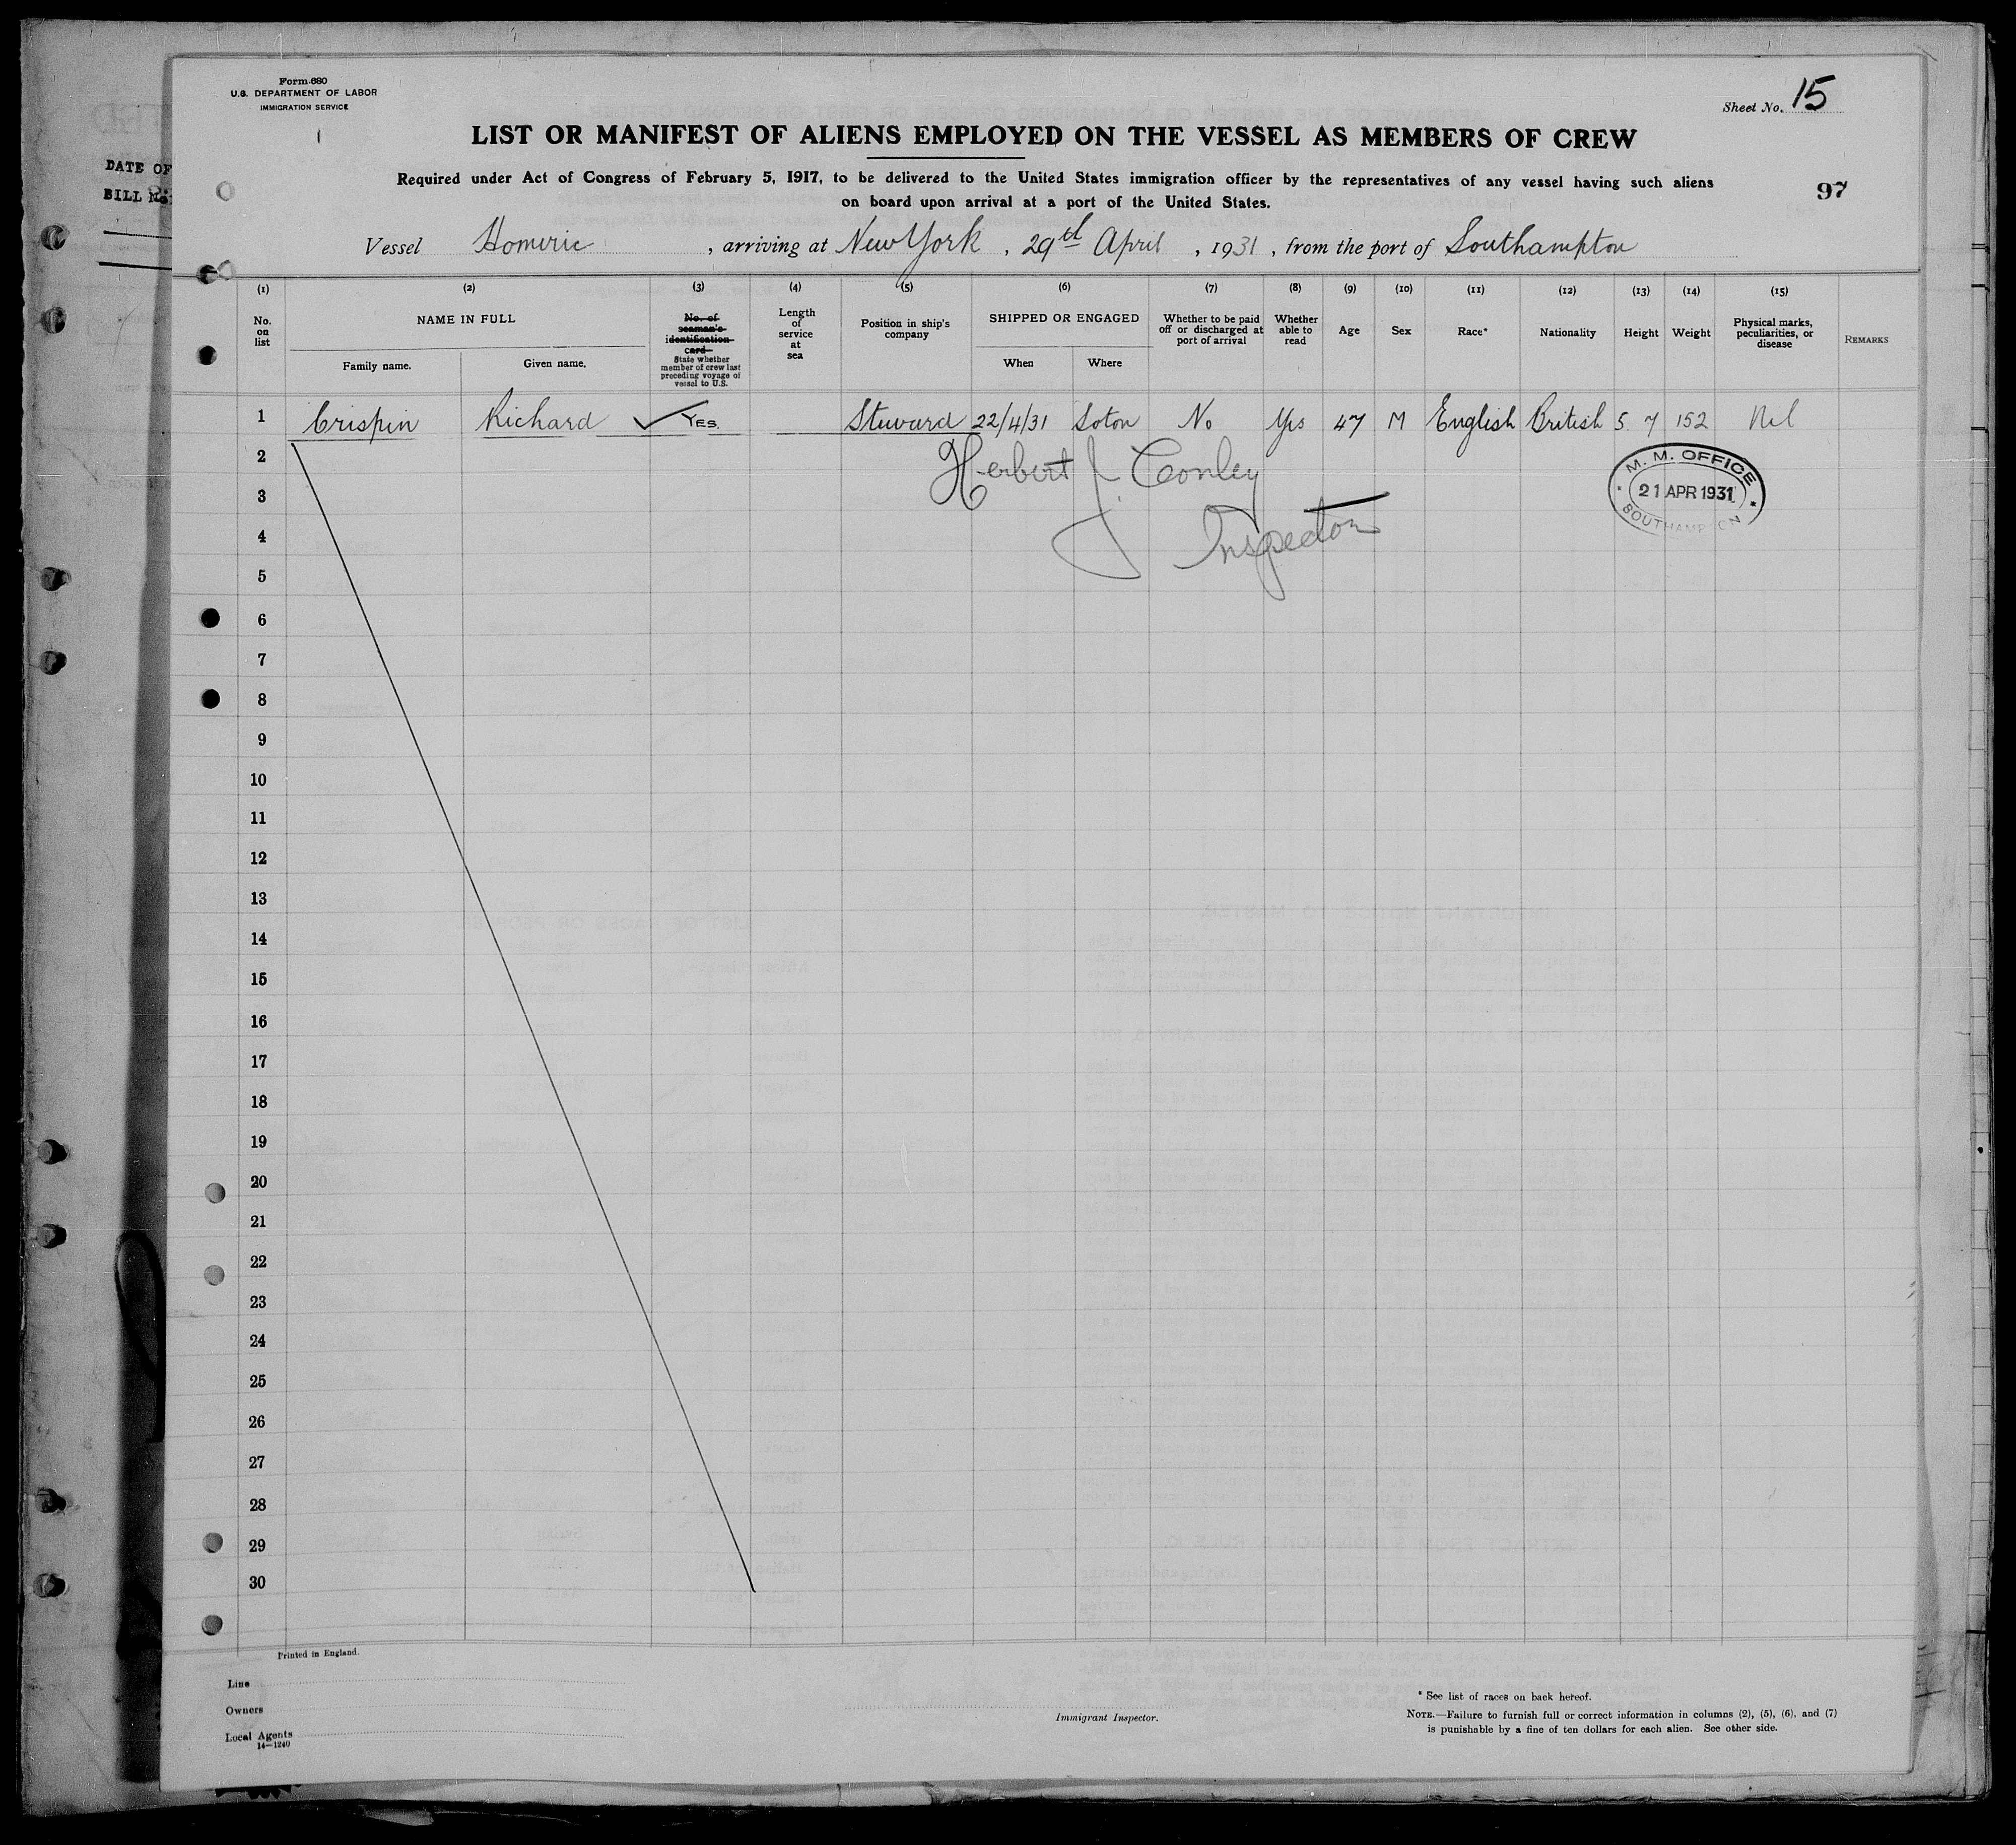 Form 680
U.S. DEPARTMENT OF LABOR
IMMIGRATION SERVICE
Sheet No. 15
LIST OR MANIFEST OF ALIENS EMPLOYED ON THE VESSEL AS MEMBERS OF CREW
Required under Act of Congress of February 5, 1917, to be delivered to the United States immigration officer by the representatives of any vessel having such aliens
on board upon arrival at a port of the United States.
97
DATE OF
BILL No.
Vessel Homeric, arriving at New York, 29th April, 1931, from the port of Southampton
(1) (2) (3) (4) (5) (6) (7) (8) (9) (10) (11) (12) (13) (14) (15)
No. on list
NAME IN FULL
Family name.
Given name.
No. of seaman's identification card
State whether member of crew last preceding voyage of vessel to U.S.
Length of service at sea
Position in ship's company
SHIPPED OR ENGAGED
When
Where
Whether to be paid off or discharged at port of arrival
Whether able to read
Age
Sex
Race*
Nationality
Height
Weight
Physical marks, peculiarities, or disease
REMARKS
1 Crispin Richard YES Steward 22/4/31 Soton No Yes 47 M English British 5 7 152 Nil
Herbert J Conley
Inspector
M. M. OFFICE
21 APR 1931
SOUTHAMPTON
2
3
4
5
6
7
8
9
10
11
12
13
14
15
16
17
18
19
20
21
22
23
24
25
26
27
28
29
30
Printed in England.
Line
Owners
Local Agents
14—1240
Immigrant Inspector.
* See list of races on back hereof.
NOTE.—Failure to furnish full or correct information in columns (2), (5), (6), and (7)
is punishable by a fine of ten dollars for each alien. See other side.